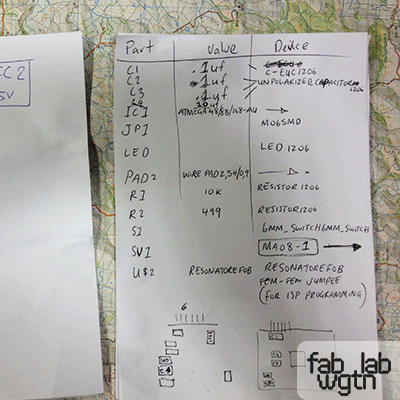 IC2
5V
Part Value Device
C1 .1uf
C-EUC1206
C2 .1uf UNPOLARIZED CAPACITOR 1206
C3 .1uf
C4 10uf
IC1 ATMEGA48/88/168-AU
JP1 M06SMD
LED LED1206
PAD2 WIREPAD2,54/0,9
R1 10K RESISTOR1206
R2 499 RESISTOR1206
S1 6MM_SWITCH6MM_SWITCH
SV1 MA08-1
U$2 RESONATOREFOB RESONATOREFOB
FEM-FEM JUMPER
(FOR ISP PROGRAMMING)
6
fab_lab
wgtn